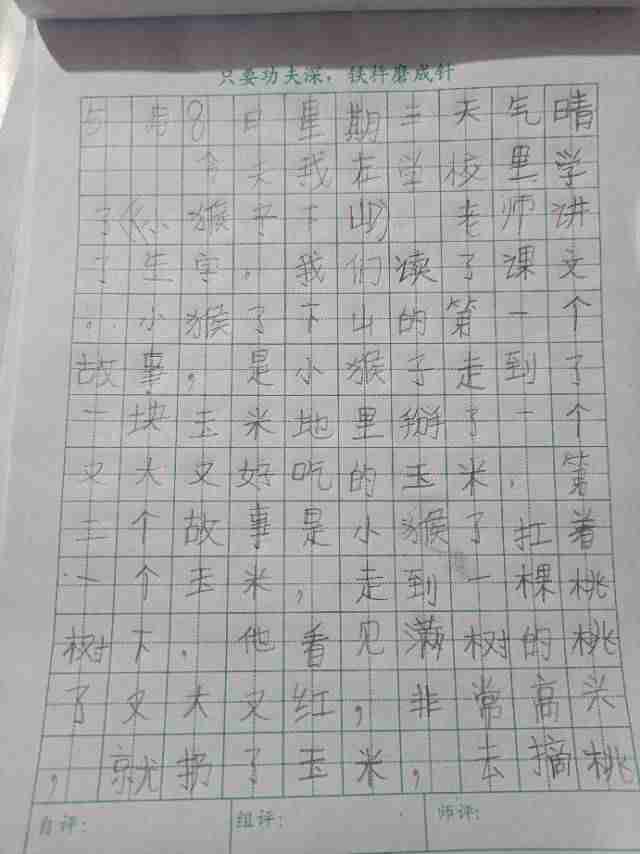 只要功夫深，铁杵磨成针
5月8日星期三天气晴
今天我在学校里学
了《小猴子下山》 老师讲
了生字。我们读了课文
。小猴子下山的第一个
故事，是小猴子走到了
一块玉米地里掰了一个
又大又好吃的玉米。第
二个故事是小猴子扛着
一个玉米，走到一棵桃
树下。他看见满树的桃
子又大又红，非常高兴
，就扔了玉米，去摘桃
自评：
组评：
师评：